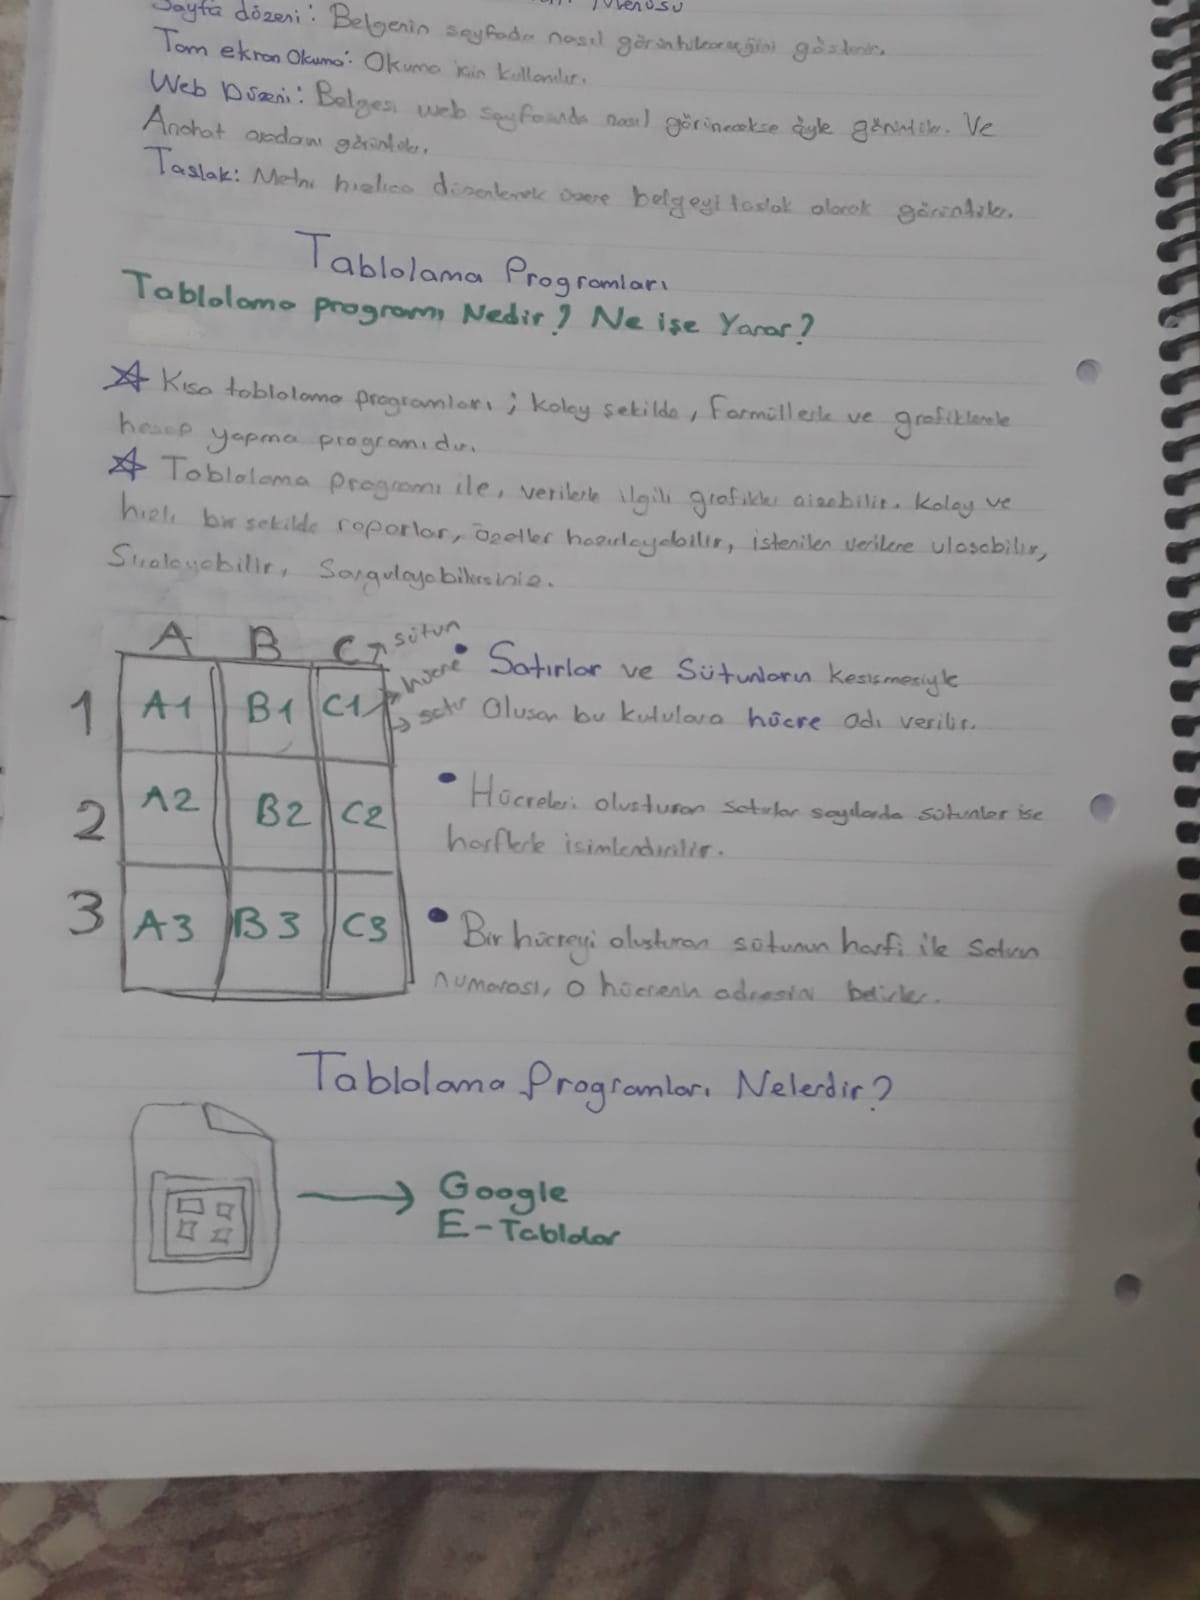 Menüsü
Sayfa düzeni: Belgenin sayfada nasıl görüntüleneceğini gösterir.
Tam ekran Okuma: Okuma için kullanılır.
Web Düzeni: Belgesi web sayfasında nasıl görünecekse öyle görüntüler. Ve
Anahat olarak görüntüler.
Taslak: Metni hızlıca düzenlemek üzere belgeyi taslak olarak görüntüler.
Tablolama Programları
Tablolama programı Nedir? Ne işe Yarar?
Kısa tablolama programları; kolay şekilde, formüllerle ve grafiklerle
hesap yapma programıdır.
Tablolama programı ile, verilerle ilgili grafikler çizebilir. Kolay ve
hızlı bir şekilde raporlar, özetler hazırlayabilir, istenilen verilere ulaşabilir,
Sıralayabilir, Sorgulayabilirsiniz.
A B C sütun
1 A1 B1 C1 hücre satır
2 A2 B2 C2
3 A3 B3 C3
• Satırlar ve Sütunların Kesişmesiyle
Oluşan bu kutulara hücre adı verilir.
• Hücreleri oluşturan satırlar sayılarla sütunlar ise
harflerle isimlendirilir.
• Bir hücreyi oluşturan sütunun harfi ile Satırın
numarası, o hücrenin adresini belirler.
Tablolama Programları Nelerdir?
Google
E-Tablolar